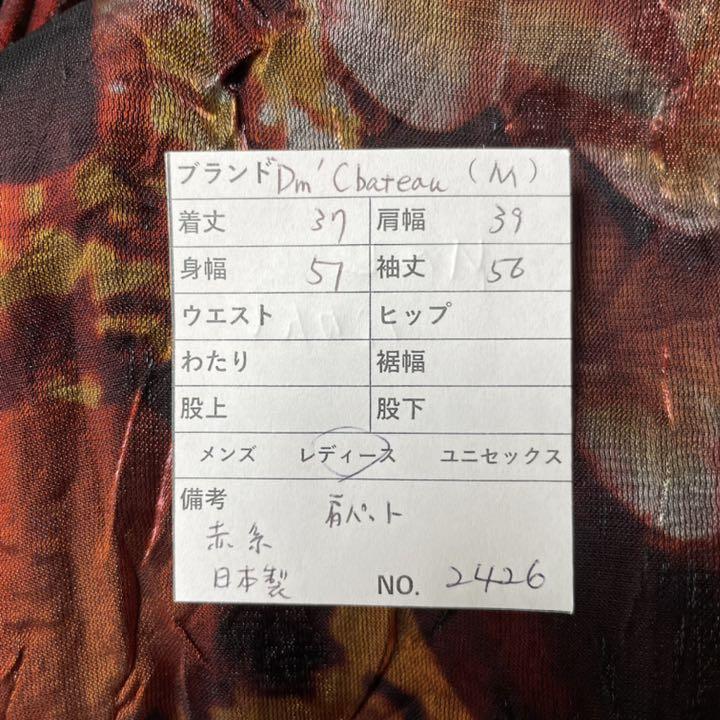 ブランド Dm' Cbateau (M)
着丈 37 肩幅 39
身幅 57 袖丈 56
ウエスト ヒップ
わたり 裾幅
股上 股下
メンズ レディース ユニセックス
備考 肩パット
赤糸
日本製 NO. 2426